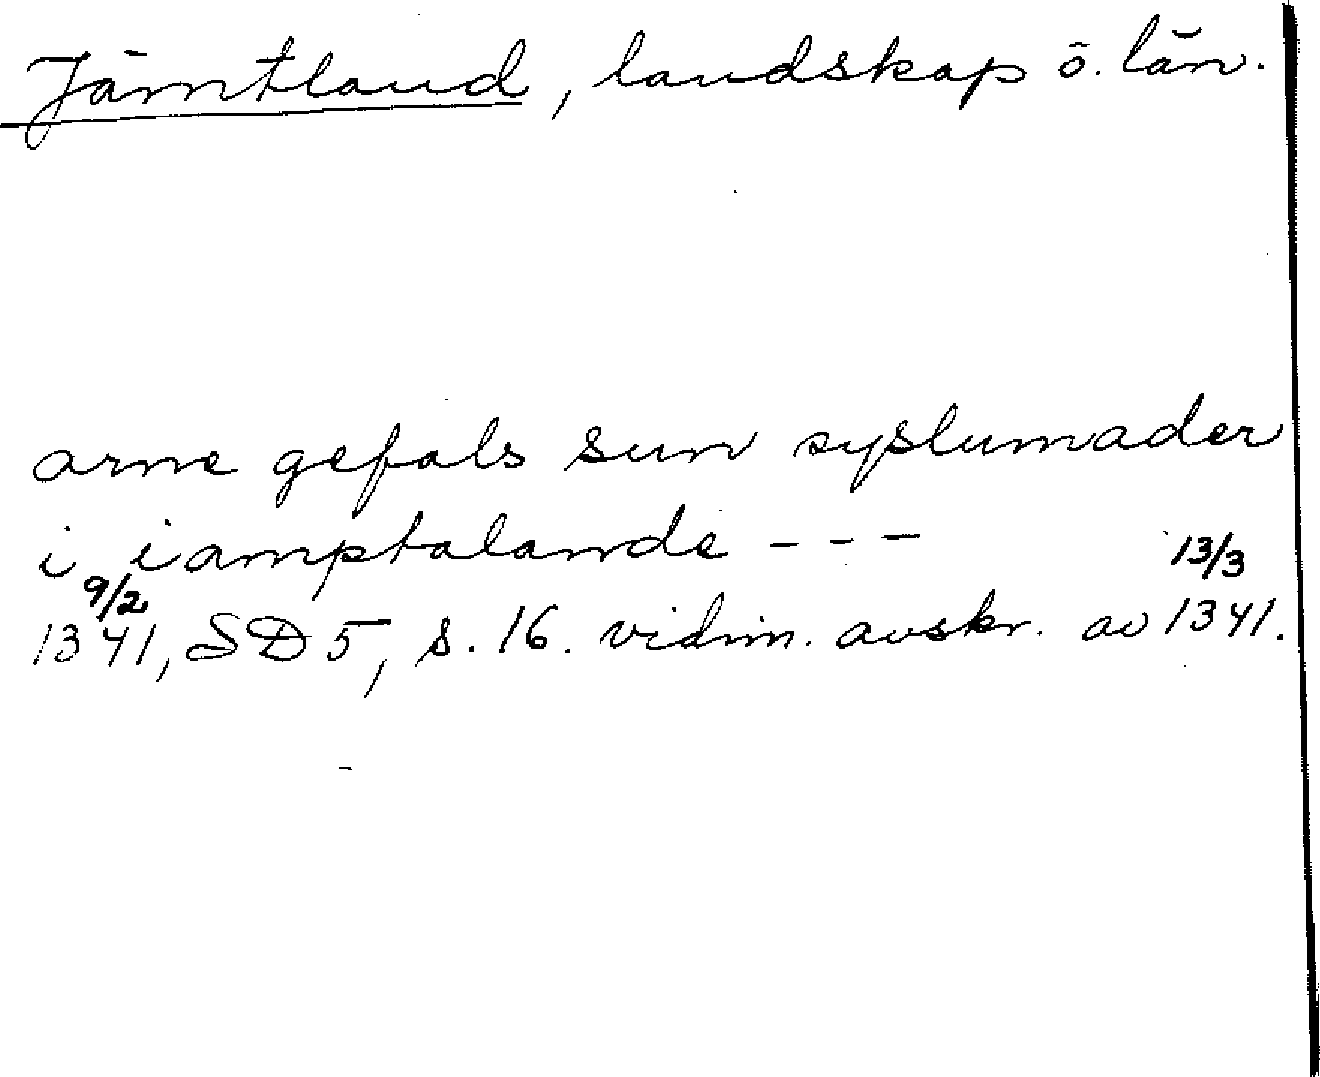 Jämtland, landskap o. län.
arne gefals sun syslumader
i iamptalande - - -
9/2 13/3
1341, SD 5, s. 16. vidim. avskr. av 1341.